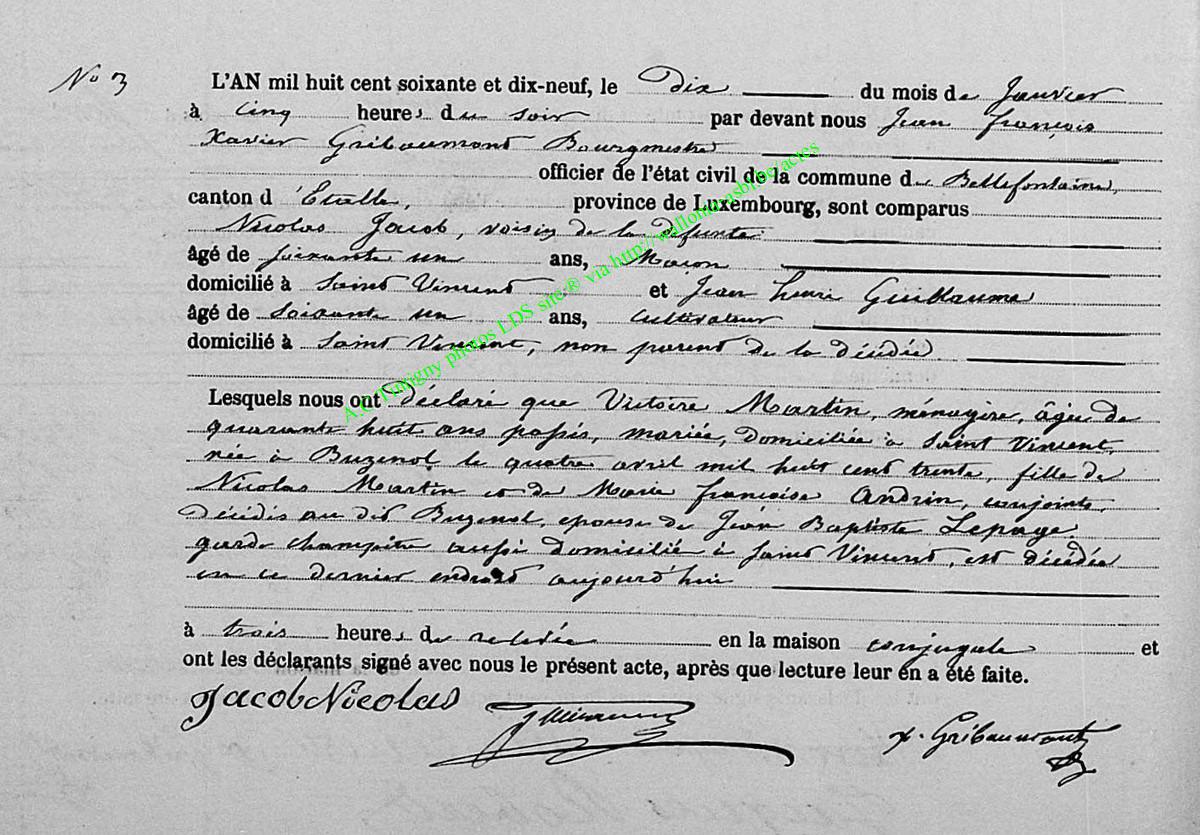 No 3
L'AN mil huit cent soixante et dix-neuf, le Dix du mois de Janvier
à cinq heures du soir par devant nous Jean François
Xavier Gribaumont Bourgmestre
officier de l'état civil de la commune de Bellefontaine,
canton d'Etalle, province de Luxembourg, sont comparus
Nicolas Jacob, voisin de la défunte
âgé de soixante un ans, Maçon
domicilié à Saint Vincent et Jean henri Guillaume
âgé de Soixante un ans, cultivateur
domicilié à Saint Vincent, non parent de la décédée
Lesquels nous ont Déclaré que Victoire Martin, ménagère, âgée de
quarante huit ans passés, mariée, domiciliée à Saint Vincent,
née à Buzenol le quatre avril mil huit cent trente, fille de
Nicolas Martin et de Marie françoise Andrin, conjoints
décédés au dit Buzenol, épouse de Jean Baptiste Lepage,
garde champêtre aussi domicilié à Saint Vincent, est décédée
en ce dernier endroit aujourd'hui
à trois heures de relevée en la maison conjugale et
ont les déclarants signé avec nous le présent acte, après que lecture leur en a été faite.
Jacob Nicolas
x. Gribaumont
A.G. Tintigny photos LDS site ® via http://wallonia.asbl.be/actes